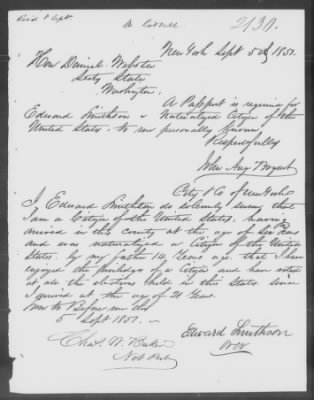 Recd 8 Sept
2131.
New York Sept 5th 1851.
Hon Daniel Webster
Secty State
Washington.
A Passport is required for
Edward Smithson a Naturalized Citizen of the
United States. to me personally known
Respectfully
John Aug
City & Co of New York
I Edward Smithson do solemnly swear that
I am a Citizen of the United States, having
arrived in this country at the age of Six Years
and was naturalized a Citizen of the United
States. by my father 14 Years ago. that I have
enjoyed the priviledge of a citizen and have voted
at all the elections held in this State. since
I arrived at the age of 21 Years.
Sworn to Before me this
5 Sept 1851. —
Edward Smithson
Chas. W.
Not Pub